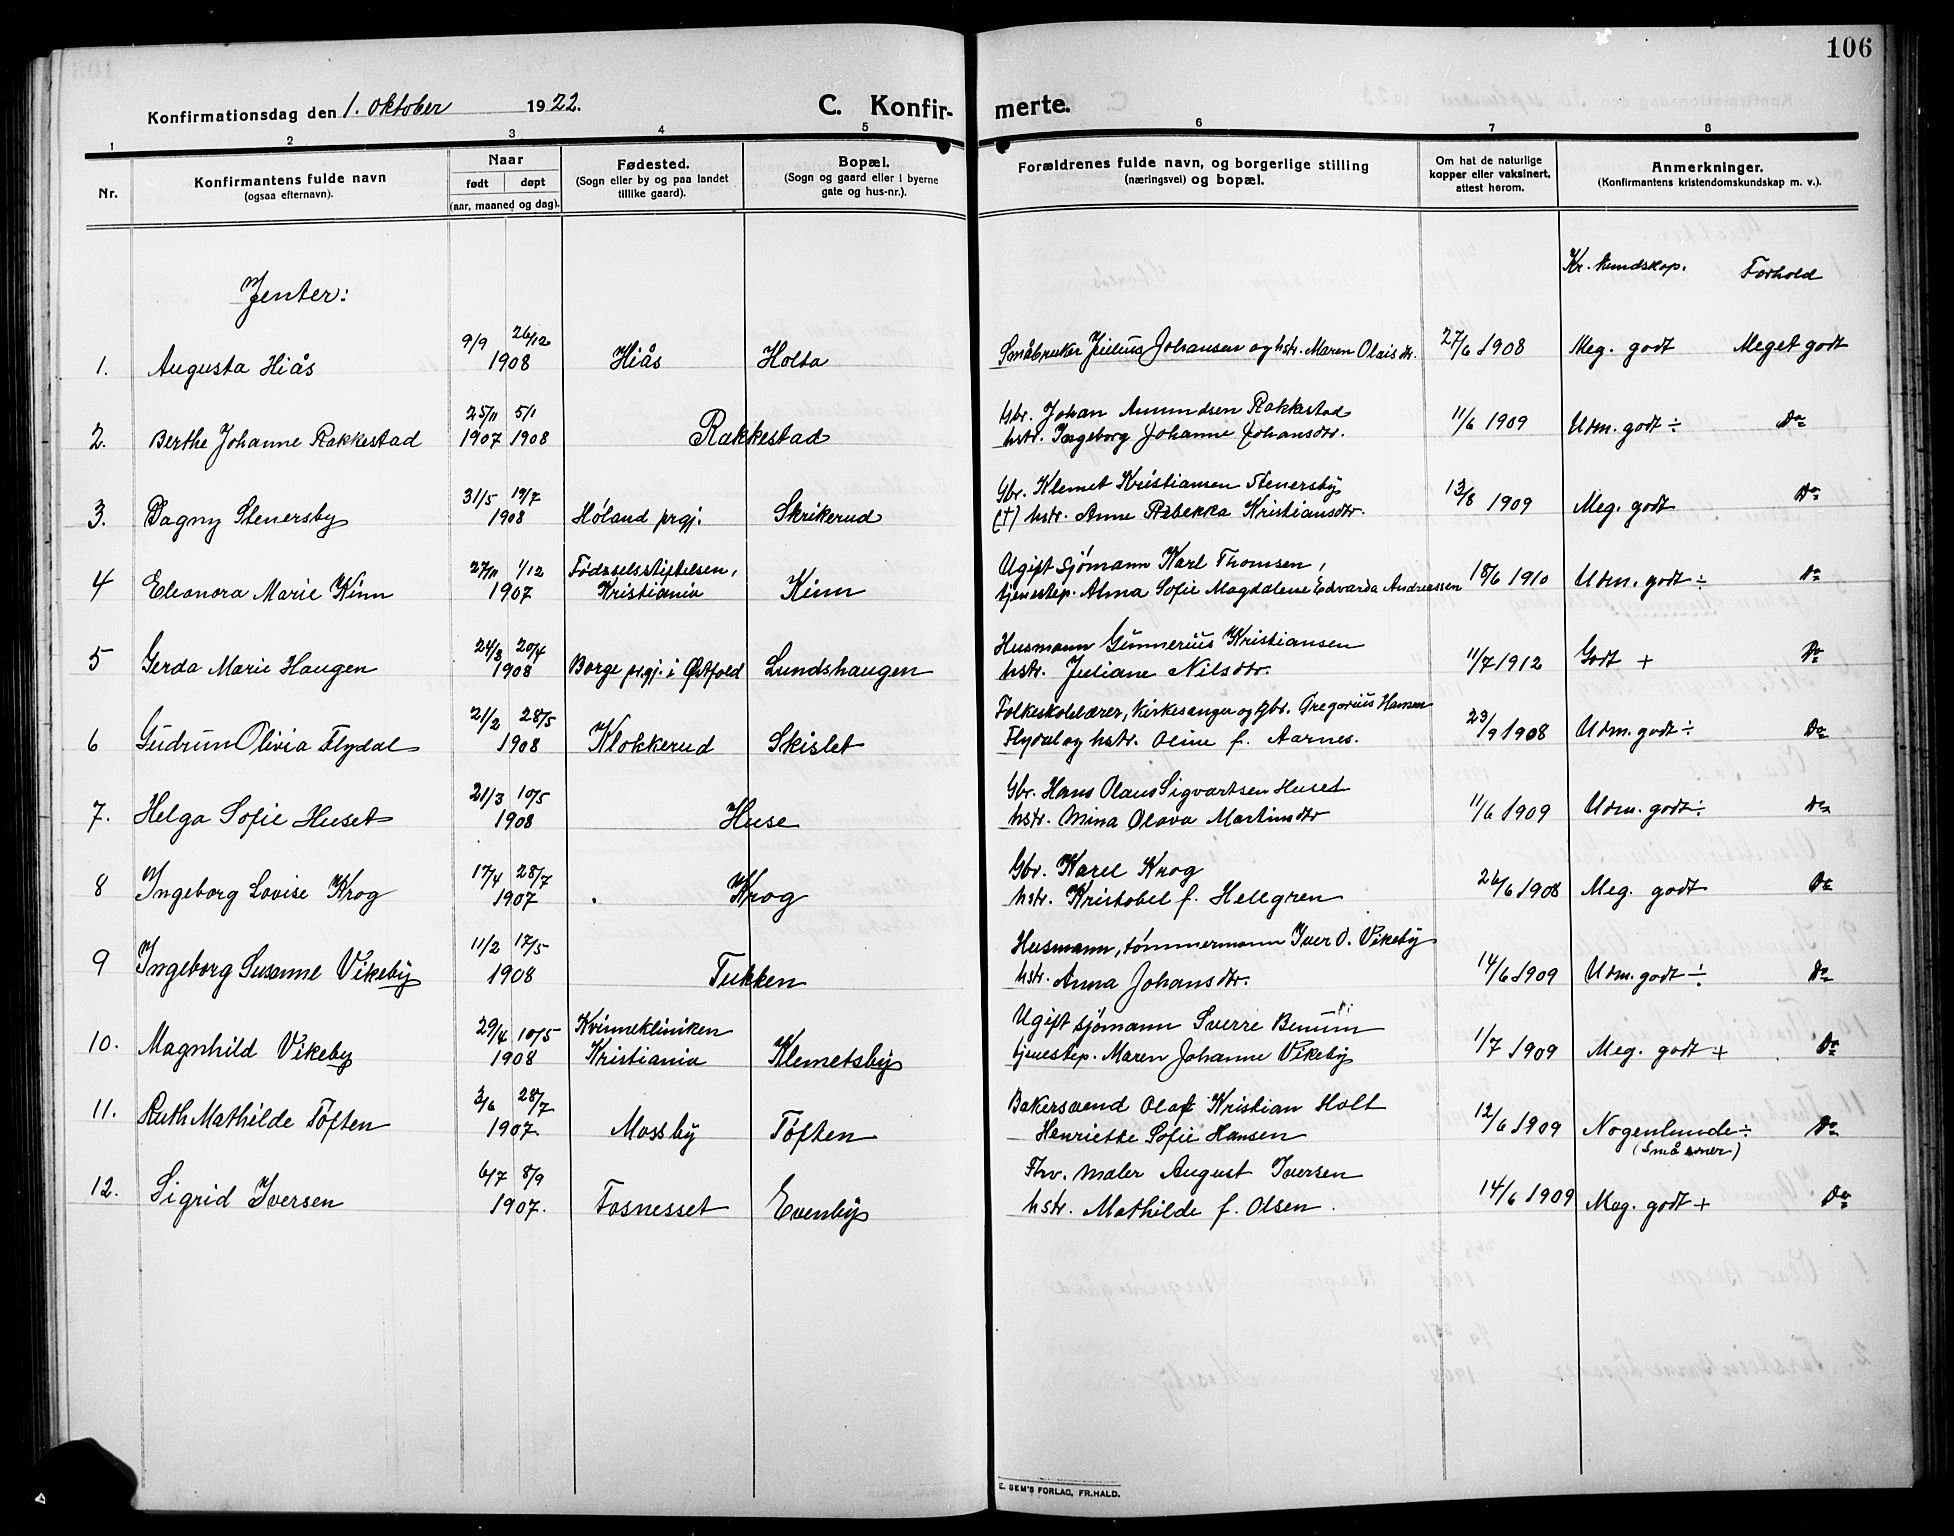 106
Konfirmationsdag den 1. oktober 1922. C. Konfirmerte.
1 2 3 4 5 6 7 8
Nr. Konfirmantens fulde navn (ogsaa efternavn). Naar født døpt (aar, maaned og dag). Fødested. (Sogn eller by og paa landet tillike gaard). Bopæl. (Sogn og gaard eller i byerne gate og hus-nr.). Forældrenes fulde navn, og borgerlige stilling (næringsvei) og bopæl. Om hat de naturlige kopper eller vaksinert, attest herom. Anmerkninger. (Konfirmantens kristendomskundskap m. v.).
Jenter: Kr. kundskap. Forhold
9/9 26/12
1. Augusta Hiås 1908 Hiås Holta Småbruker Julius Johansen og hstr. Maren Olaisdr. 27/6 1908 Meg. godt Meget godt
25/11 5/1 Gbr. Johan Amundsen Rakkestad
2. Berthe Johanne Rakkestad 1907 1908 Rakkestad hstr. Ingeborg Johanne Johansdtr. 11/6 1909 Udm. godt ÷ Do
31/5 19/7 Gbr. Klemet Kristiansen Stenersby
3. Dagny Stenersby 1908 Høland prgj. Skrikerud (†) hstr. Anne Rebekka Kristiansdtr. 13/8 1909 Meg. godt Do
27/11 1/12 Fødselsstiftelsen, Ugift sjømann Karl Thomsen,
4 Eleonora Marie Kinn 1907 Kristiania Kinn tjenestep. Alma Sofie Magdalene Edvarda Andreassen 18/6 1910 Udm. godt ÷ Do
24/3 20/4 Husmann Gunnerius Kristiansen
5 Gerda Marie Haugen 1908 Borge prgj. i Østfold Lundshaugen hstr. Juliane Nilsdtr. 11/7 1912 Godt + Do
21/2 28/5 Folkeskolelærer, kirkesanger og gbr. Gregorius Hansen
6 Gudrun Olivia Flydal 1908 Klokkerud Skislet Flydal og hstr. Oline f. Aarnes. 23/9 1908 Udm. godt ÷ Do
21/3 10/5 Gbr. Hans Olaus Sigvartsen Huset
7. Helga Sofie Huset 1908 Huse hstr. Mina Olava Martinsdtr 11/6 1909 Udm. godt ÷ Do
17/4 28/7 Gbr. Karel Krog
8 Ingeborg Lovise Krog 1907 Krog hstr. Kristobel f. Hellgren 26/6 1908 Meg. godt Do
11/2 17/5 Husmann, tømmermann Iver O. Vikeby
9 Ingeborg Susanne Vikeby 1908 Tukken hstr. Anna Johansdtr. 14/6 1909 Udm. godt ÷ Do
29/4 10/5 Kvinnekliniken Ugift sjømann Sverre
10. Magnhild Vikeby 1908 Kristiania Klemetsby tjenestep. Maren Johanne Vikeby 1/7 1909 Meg. godt + Do
3/6 28/7 Bakersvend Olaf Kristian Holt
11. Ruth Mathilde Tøften 1907. Mossby Tøften Henriette Sofie Hansen 12/6 1909 Nogenlunde ÷ Do
(Små evner)
6/7 8/9 Fhv. maler August Iversen
12. Sigrid Iversen 1907. Fosnesset Evenby hstr. Mathilde f. Olsen. 14/6 1909 Meg. godt + Do
E. SEM'S FORLAG, FR.HALD.